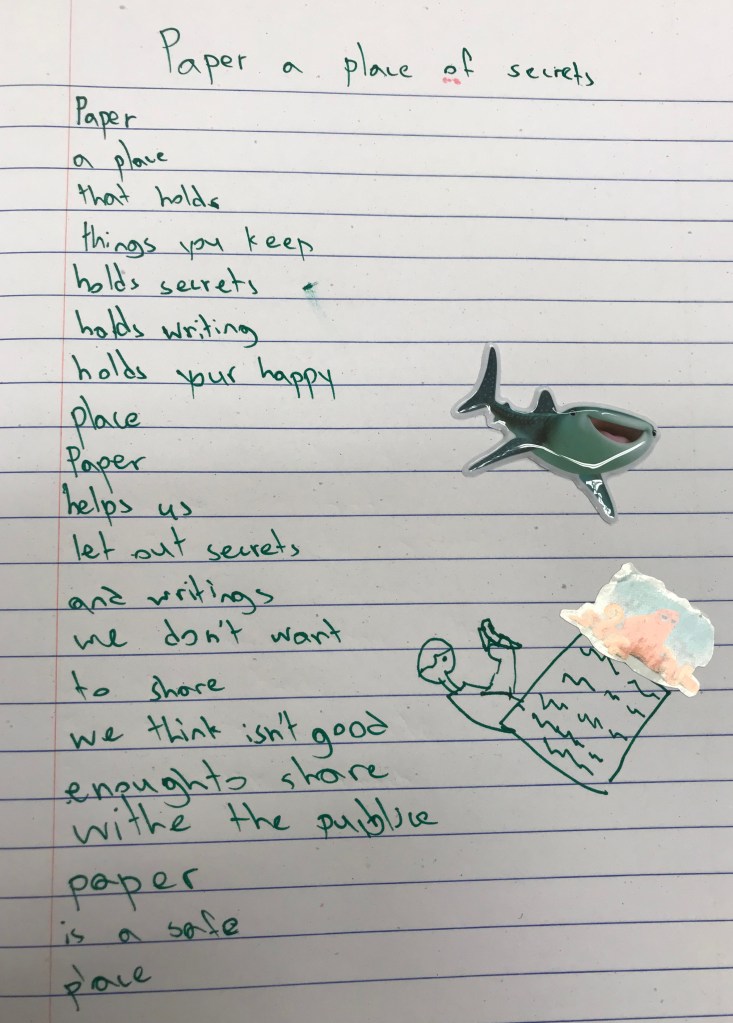 Paper a place of secrets
Paper
a place
that holds
things you keep
holds secrets
holds writing
holds your happy
place
Paper
helps us
let out secrets
and writings
we don't want
to share
we think isn't good
enought to share
withe the publice
paper
is a safe
place